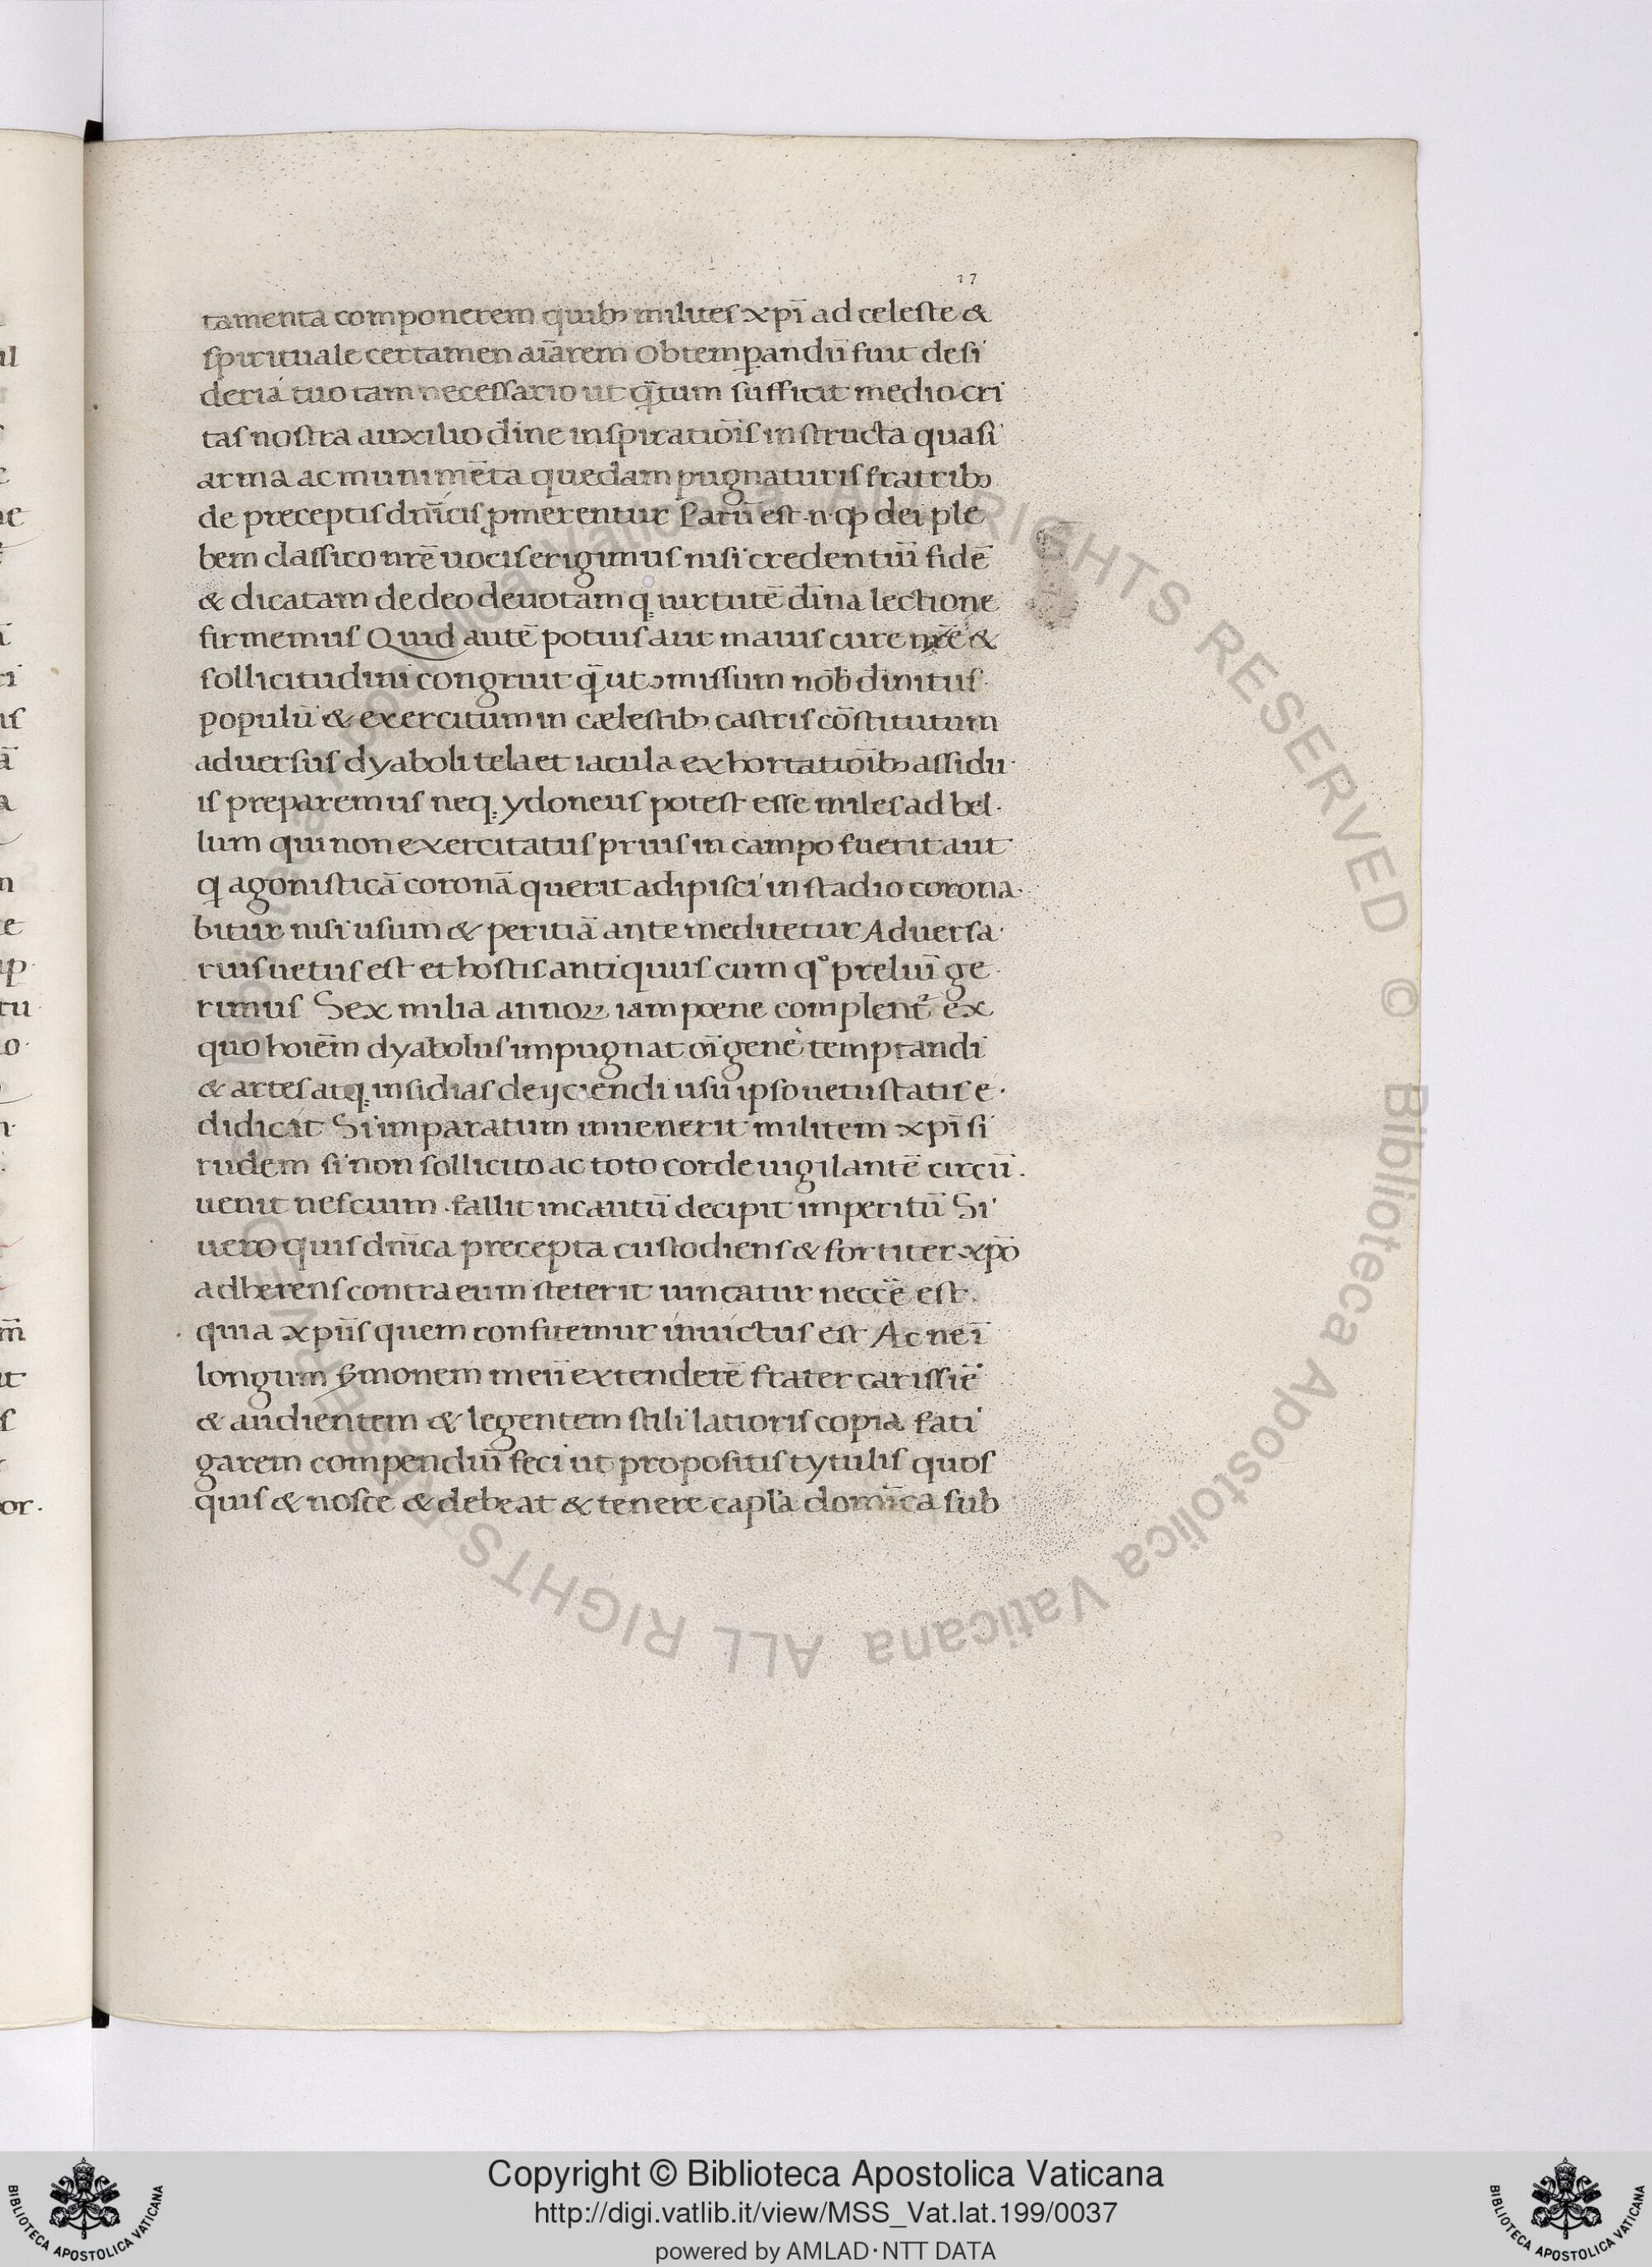 17
tamenta componerem quibꝰ milites xpī ad celeste &
spirituale certamen aīarem Obtemꝑandū fuit desi
deria tuo tam necessario ut q̄tum sufficit mediocri
tas nostra auxilio diīne inspiratiōis instructa quasi
arma ac munimēta quedam pugnaturis fratribꝰ
de preceptis dn̄icis ꝓmerentur Parū est .n. ꝙ dei ple
bem classico nr̄e uocis erigimus nisi credentiū fidē
& dicatam de deo deuotam qꝫ uirtutē diīna lectione
firmemus Quid autē potius aut maius cure nr̄e &
sollicitudini congruit q̄ ut ꝯmissum nōb diīnitus
populū & exercitum in cælestibꝰ castris cōstitutum
aduersus dyaboli tela et iacula exhortatiōibꝰ assidu
is preparemus neqꝫ ydoneus potest esse miles ad bel
lum qui non exercitatus prius in campo fuerit aut
qi agonisticā coronā querit adipisci in stadio corona
bitur nisi usum & peritiā ante meditetur Aduersa
rius uetus est et hostis antiquus cum qͦ preliuī ge
rimus Sex milia annoꝝ iam poene complent᷑ ex
quo hoiēm dyabolus impugnat oī genē temptandi
& artes atqꝫ insidias deijciendi usū ipso uetustatis e
didicit Si imparatum inuenerit militem xpī si
rudem si non sollicito ac toto corde uigilantē circū
uenit nescium . fallit incautū decipit imperitū Si
uero quis dn̄ica precepta custodiens & fortiter xpō
adherens contra eum steterit uincatur necc̄e est.
quia xpūs quem confitemur inuictus est Ac ne ī
longum ẜmonem meū extenderē frater carissīe
& audientem & legentem stili latioris copia fati
garem compendiū feci ut propositis tytulis quos
quis & nosce & debeat & tenere capl̄a domīca sub
il
or.
Copyright © Biblioteca Apostolica Vaticana
http://digi.vatlib.it/view/MSS_Vat.lat.199/0037
powered by AMLAD·NTT DATA
BIBLIOTECA APOSTOLICA VATICANA
BIBLIOTECA APOSTOLICA VATICANA
© Biblioteca Apostolica Vaticana ALL RIGHTS RESERVED